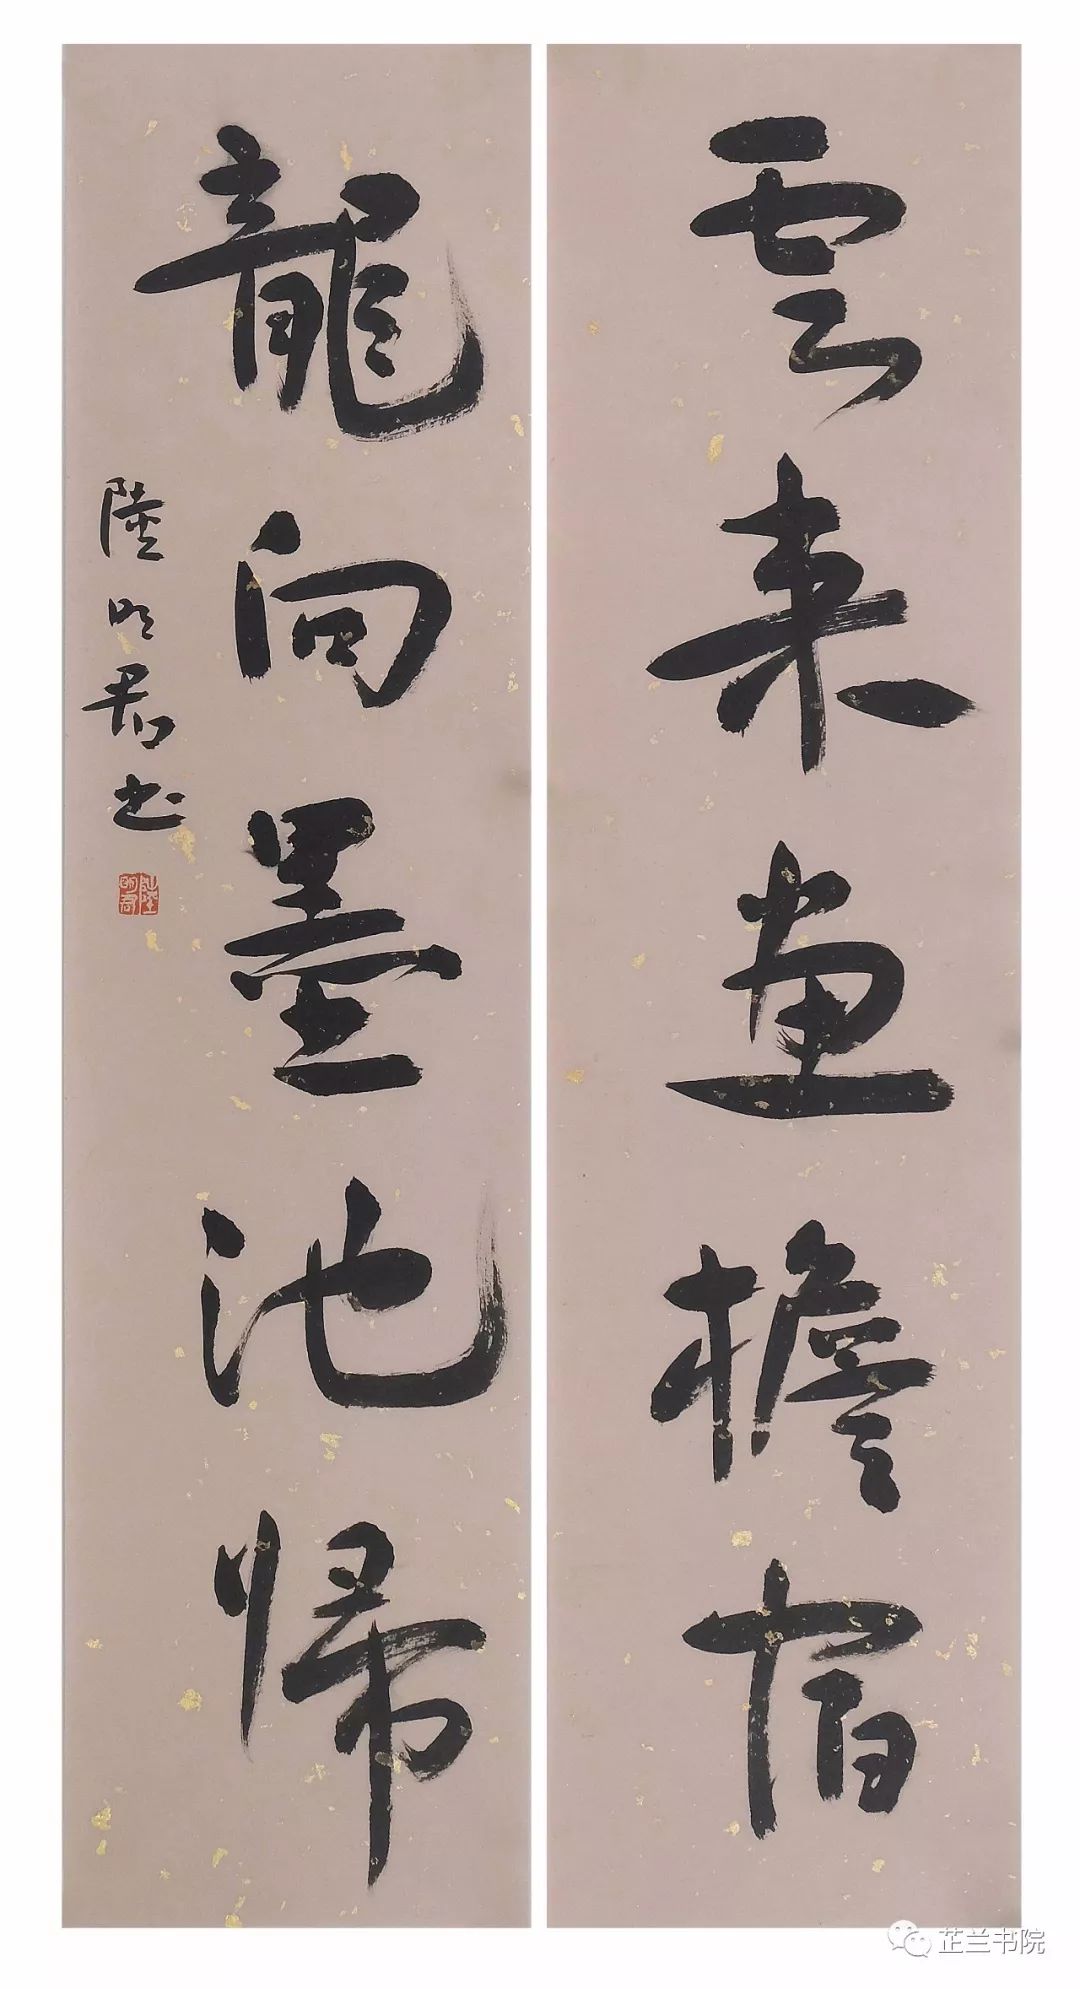 雲来画檐宿
龍向墨池帰
陸明君书
陸明君
芷兰书院